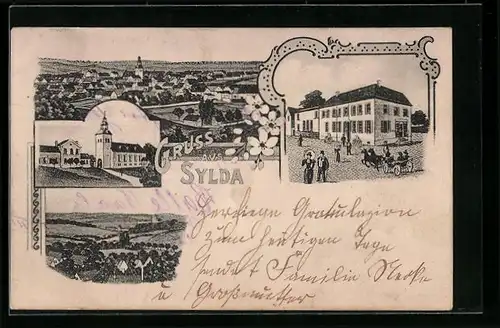 GRUSS
AUS
SYLDA
Herzliege Gratulazion
zum heutigen Tage
sendet Familie
u Großmutter